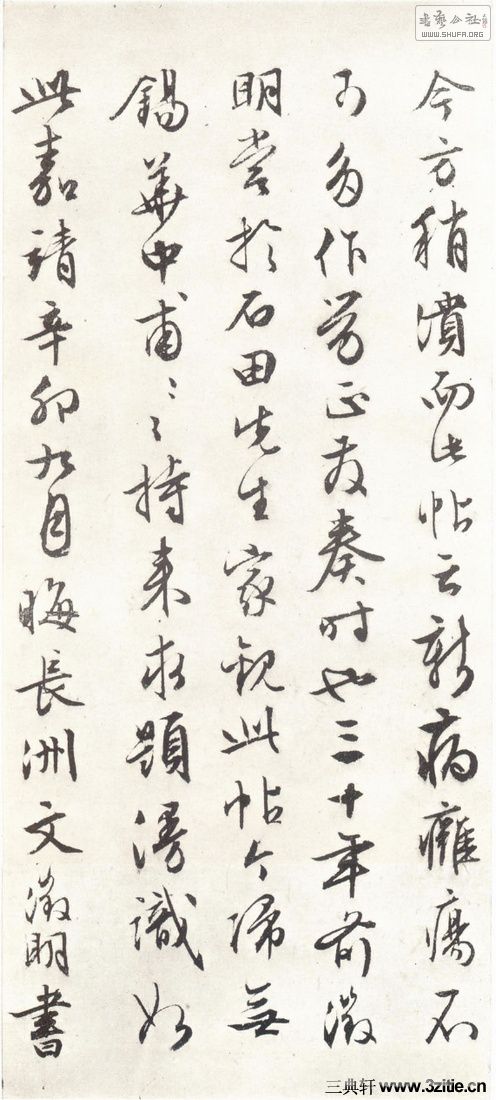 書藝公社
WWW.SHUFA.ORG
今方稍潰而此帖云新病癰瘍不
可多作勞正奏時也三十年前徵
明嘗於石田先生家觀此帖今歸無
錫華中甫〻〻持来求題漫識如
此嘉靖辛卯九月晦長洲文徵明書
三典轩 www.3zitie.cn